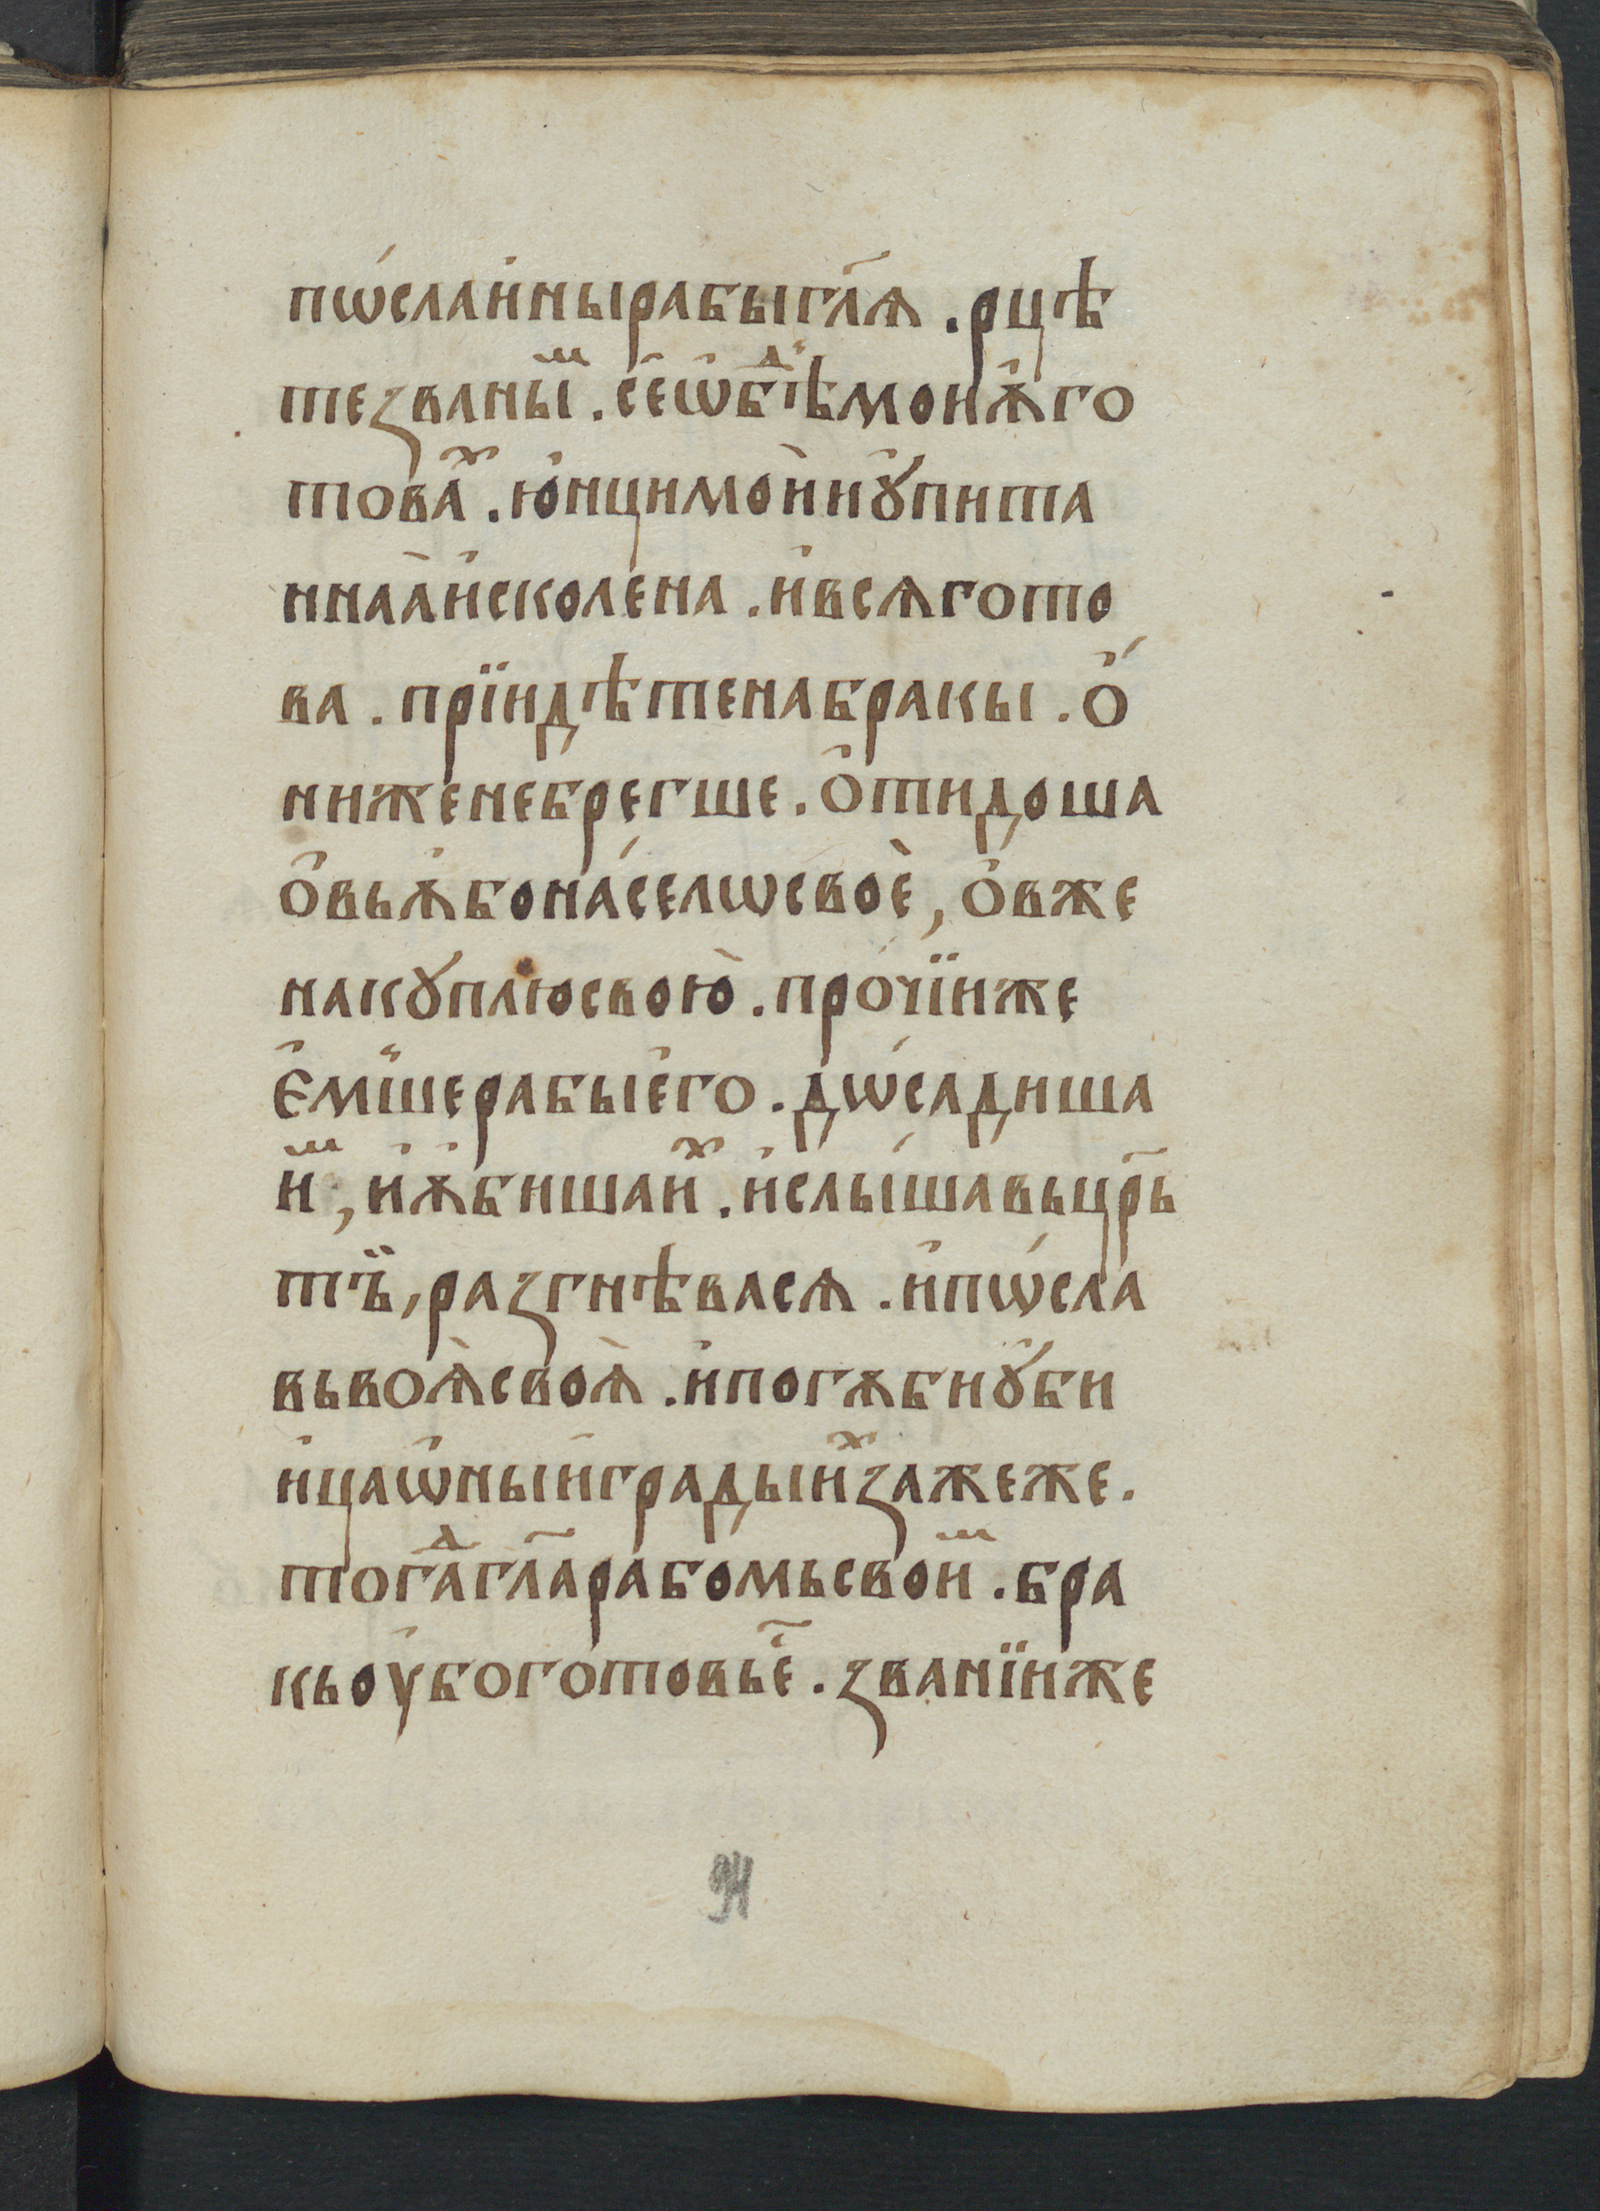 пѡ́слаи҆нырабыгл҃ѧ . рцѣ
тезваныⷨ . се҆ѡ҆бⷣѣмои҆ѫ҆го
товаⷯ . ю҆нцимои̇иꙋ҆пита
ннаа̀и҆сколе́на . и҆всѧгото
ва . прїидѣтенабракы . о҆́
нижене҆брегше . о҆тидоша
о҆вьѫ҆бона́се́лѡсвоѐ , о҆́вже
накꙋплюсвою̀ . про́чїиже
є҆мⷲ҇ерабые҆го . дѡ́садиша
иⷨ , и҆ѫ҆бишаи҆ⷯ . и҆слы́шавьцр҃ь
тъ̈ , разгнѣвасѧ . и҆пѡ́сла
вьвоѧ̀своѧ̀ . и҆погѫбиꙋ҆би
и҆цаѡ҆ныи҆градыиⷯзажеже .
тогаⷣгл҃ара́бомьсвоиⷨ . бра
кьоу҆богото́вье҆҃ . званїиже
94